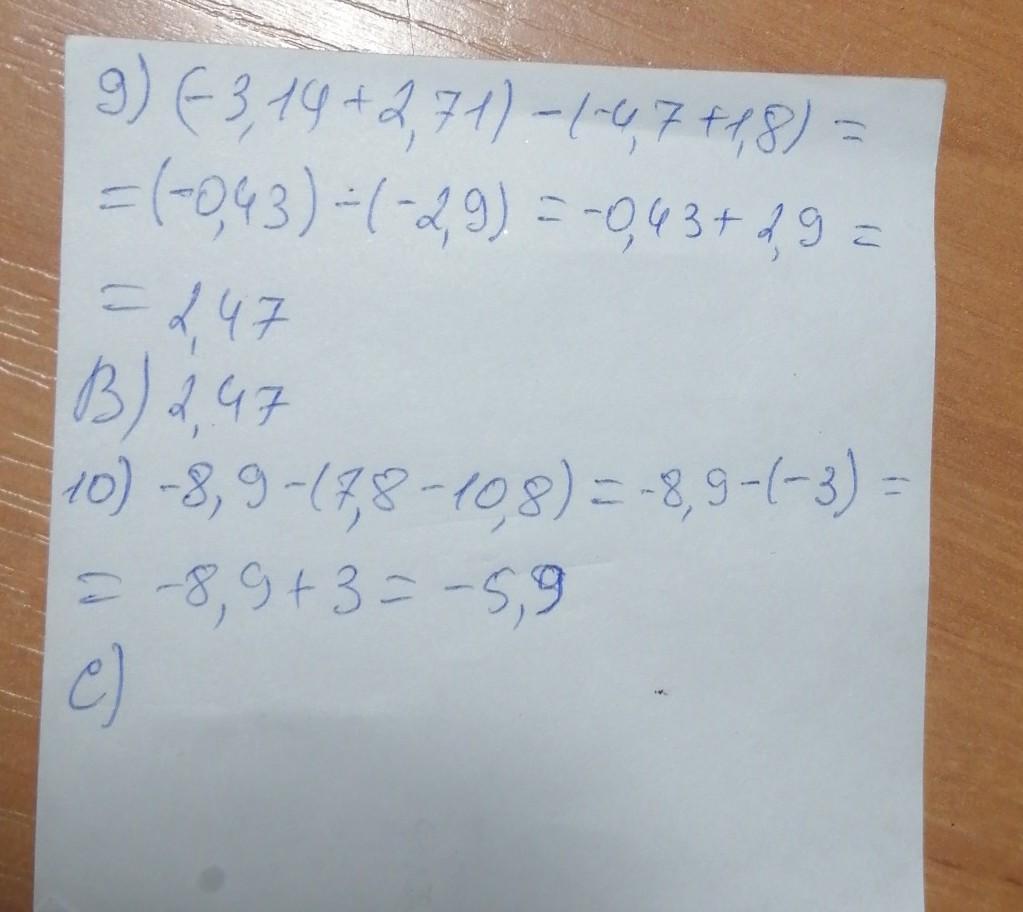 9) (-3,14+2,71) -(-4,7+1,8) =
= (-0,43) ÷(-2,9) = -0,43+2,9 =
= 2,47
B) 2,47
10) -8,9-(7,8-10,8) = -8,9-(-3) =
= -8,9+3 = -5,9
C)